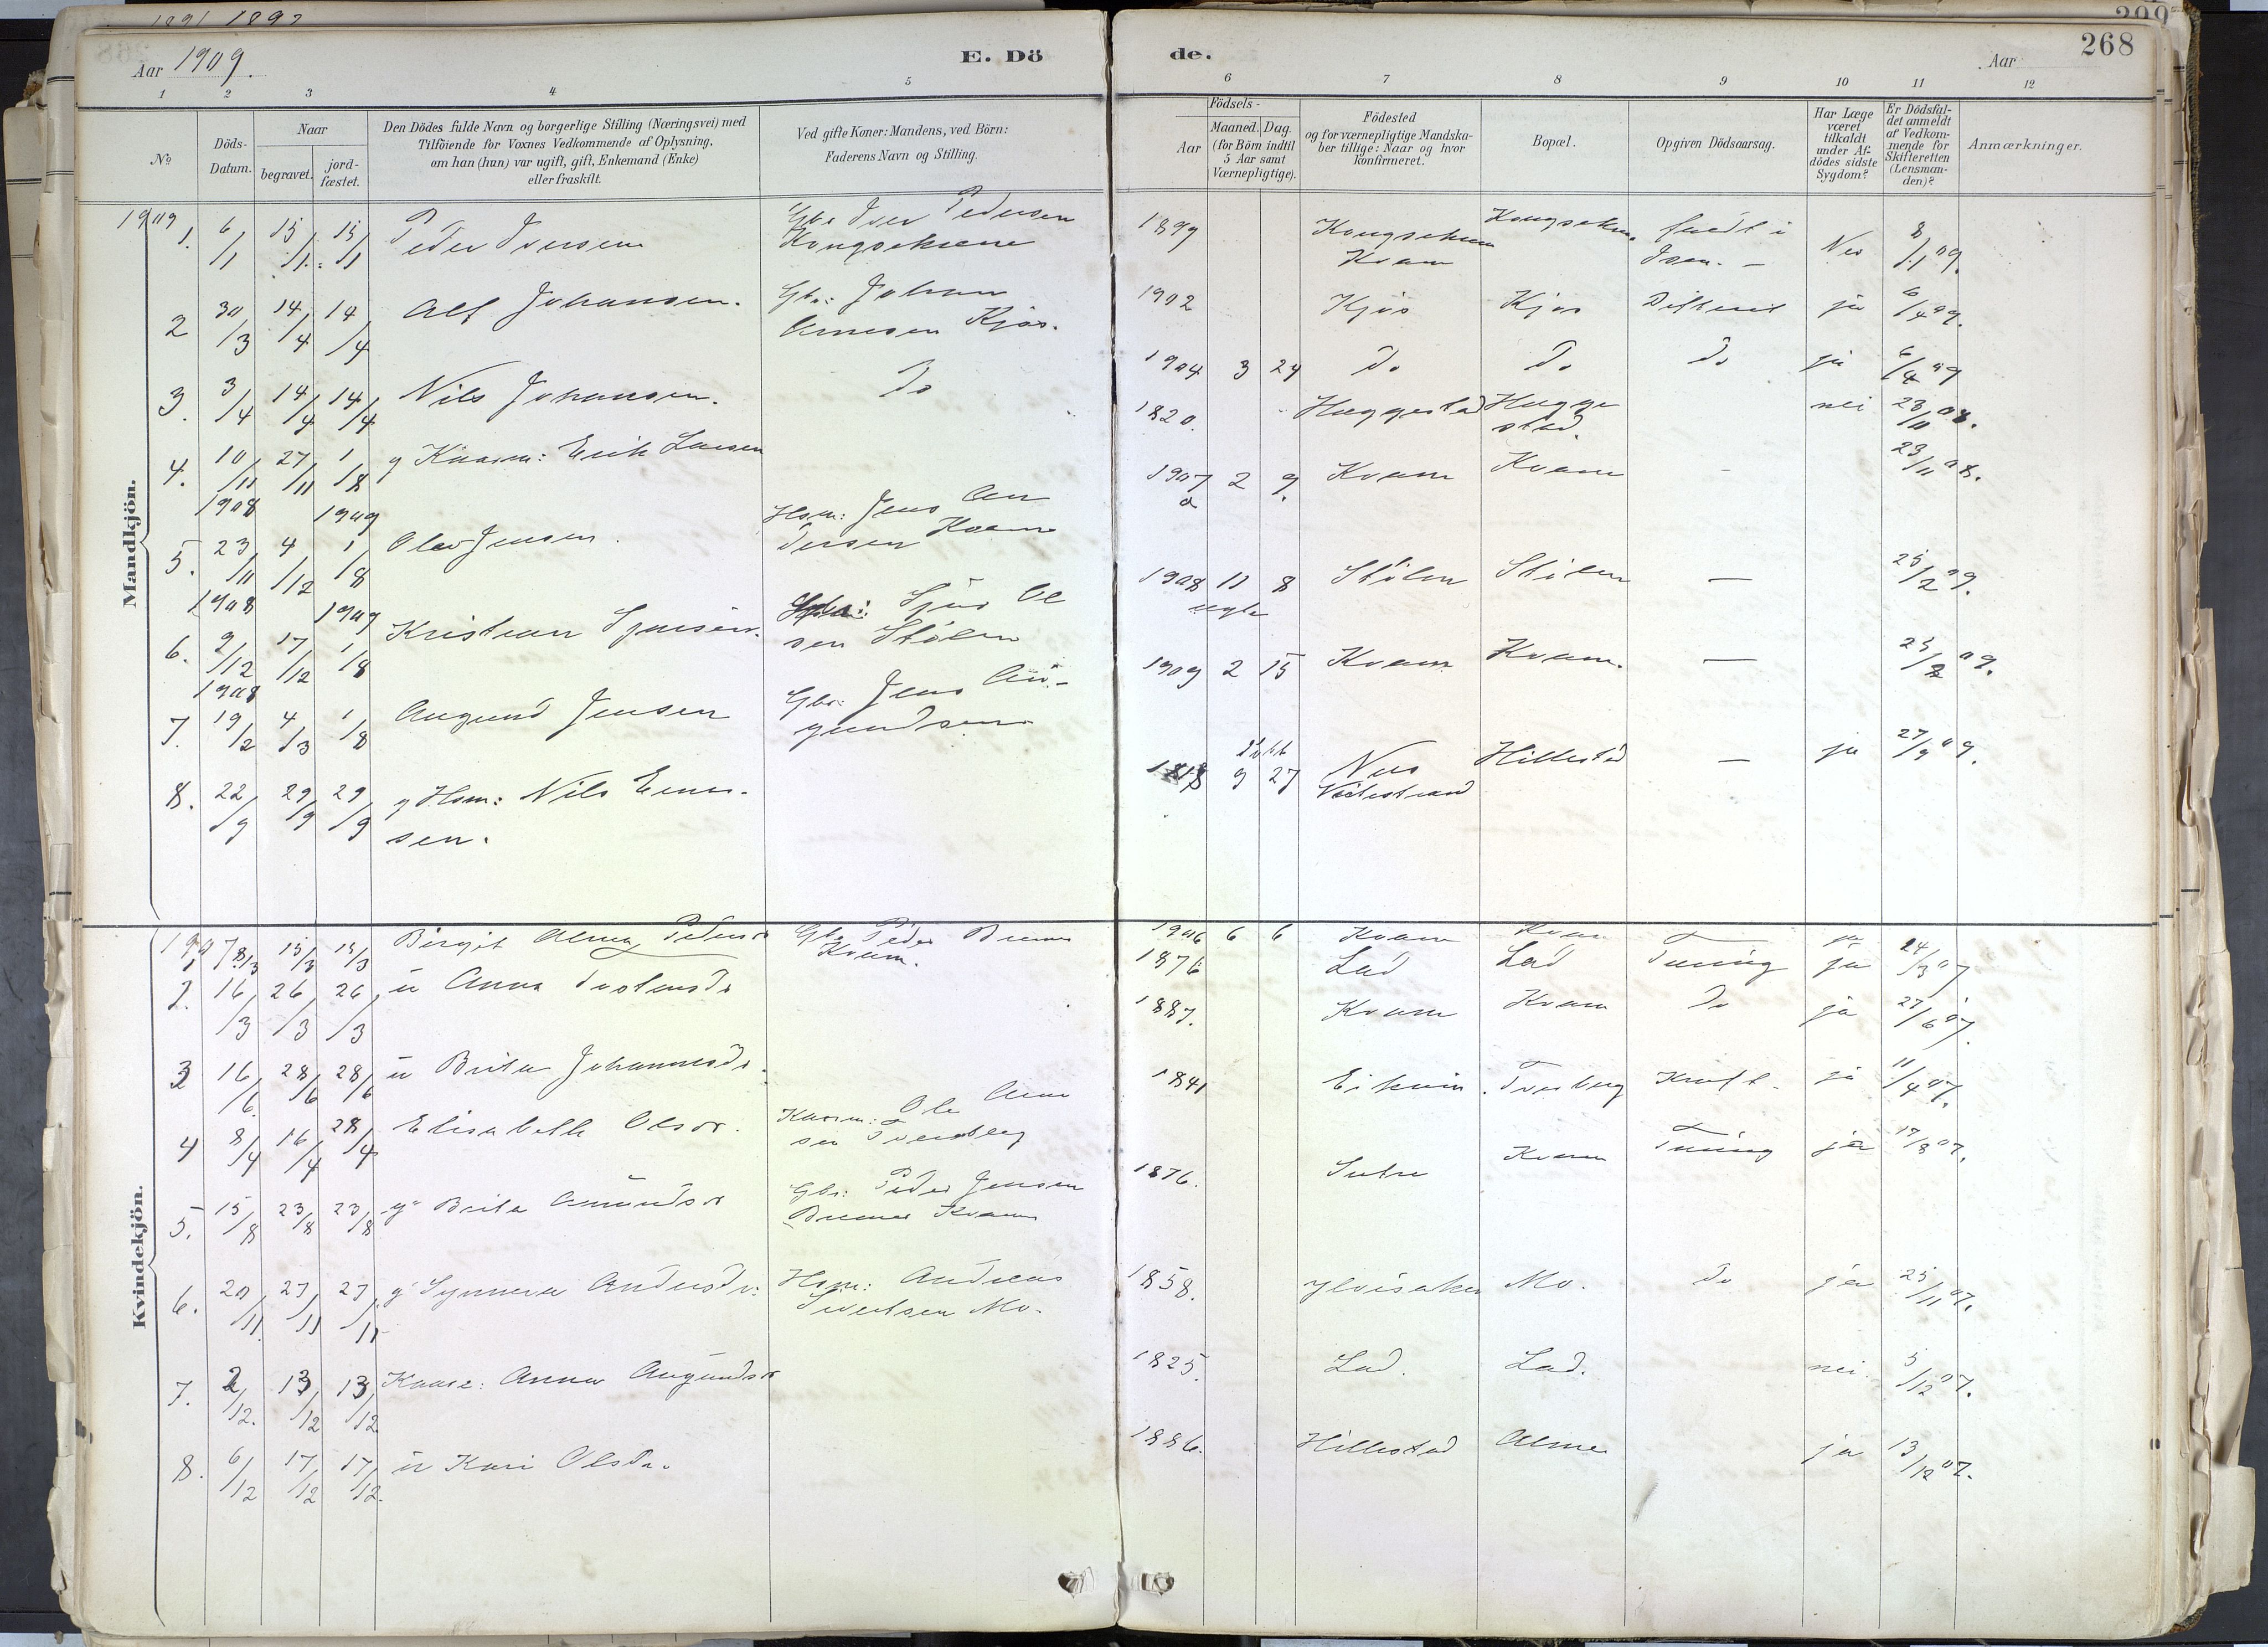 1891 1892
299
268
Aar 1909.
E. Dö
de.
Aar
1 2 3 4 5 6 7 8 9 10 11 12
No
Döds-
Datum.
Naar
begravet.
jord-
fæstet.
Den Dödes fulde Navn og borgerlige Stilling (Næringsvei) med
Tilföiende for Voxnes Vedkommende af Oplysning,
om han (hun) var ugift, gift, Enkemand (Enke)
eller fraskilt.
Ved gifte Koner: Mandens, ved Börn:
Faderens Navn og Stilling.
Födsels-
Aar
Maaned. Dag.
(for Börn indtil
5 Aar samt
Værnepligtige).
Födested
og for værnepligtige Mandska-
ber tillige: Naar og hvor
konfirmeret.
Bopæl.
Opgiven Dödsaarsag.
Har Læge
været
tilkaldt
under Af-
dödes sidste
Sygdom?
Er Dödsfal-
det anmeldt
af Vedkom-
mende for
Skifteretten
(Lensman-
den)?
Anmærkninger.
Mandkjön.
1909
1. 6/1 15/1 15/1 Peder Iversen Gbr Iver Pedersen 1899 Kvam Nei 8/1 09.
2 30/3 14/4 14/4 Alf Johansen. Gbr: Johan Arnesen Kjös. 1902 Kjös Kjös ja 6/4 09.
3. 3/4 14/4 14/4 Nils Johansen. Do 1904 3 24 Do Do Do ja 6/4 09
4. 10/11 1908 27/11 1/8 1909 g Kaarm: Erik Larsen 1820. Huggestad Huggestad. nei 23/11 08.
5. 23/11 1908 4/12 1/8 1909 Olav Jensen. Hsm: Jens Andersen Kvam 1907 2 9. Kvam Kvam - 23/11 08.
6. 9/12 1908 17/12 1/8 Kristian Sjursen. Sjur Olsen Stölen 1908 11 8 Stölen Stölen — 25/2 09.
7. 19/2 4/3 1/8 Augund Jensen Gbr: Jens Augundsen 1909 2 15 Kvam Kvam. — 25/2 09.
8. 22/9 29/9 29/9 g Hsm: Nils Einarsen. 1818 9 27 Hillestad — ja 27/9 09.
Kvindekjön.
1907
1 8/3 15/3 15/3 Birgit Alma Gbr Peder Kvam. 1906 6 6 Kvam Kvam ja
2. 16/3 26/3 26/3 u Anna 1876 Lad Lad Tæring ja 24/3 07
3 16/6. 28/6 28/6 u Brita Johannesdr. 1887. Kvam Kvam Do ja 27/6 07.
4 8/4 16/4 28/4 Elisabeth Olsdr. Kaarm: Ole 1841 Kræft. ja 11/4 07.
5. 15/8 23/8 23/8 g Brita Amundsdr Gbr: Peder Jensen Kvam 1876. Kvam Tæring ja 17/8 07.
6. 20/11. 27/11 27/11 g Synneva Andersdr: Hsm: Andreas Sivertsen Mo. 1858. Ylvisaker Mo. Do ja 25/11 07.
7. 2/12. 13/12 13/12 Anna Augundsdr 1825. Lad. Lad. nei. 5/12 07.
8. 6/12 17/12 17/12. u Kari Olsdr. 1886. Hillestad Alme ja 13/12 07.